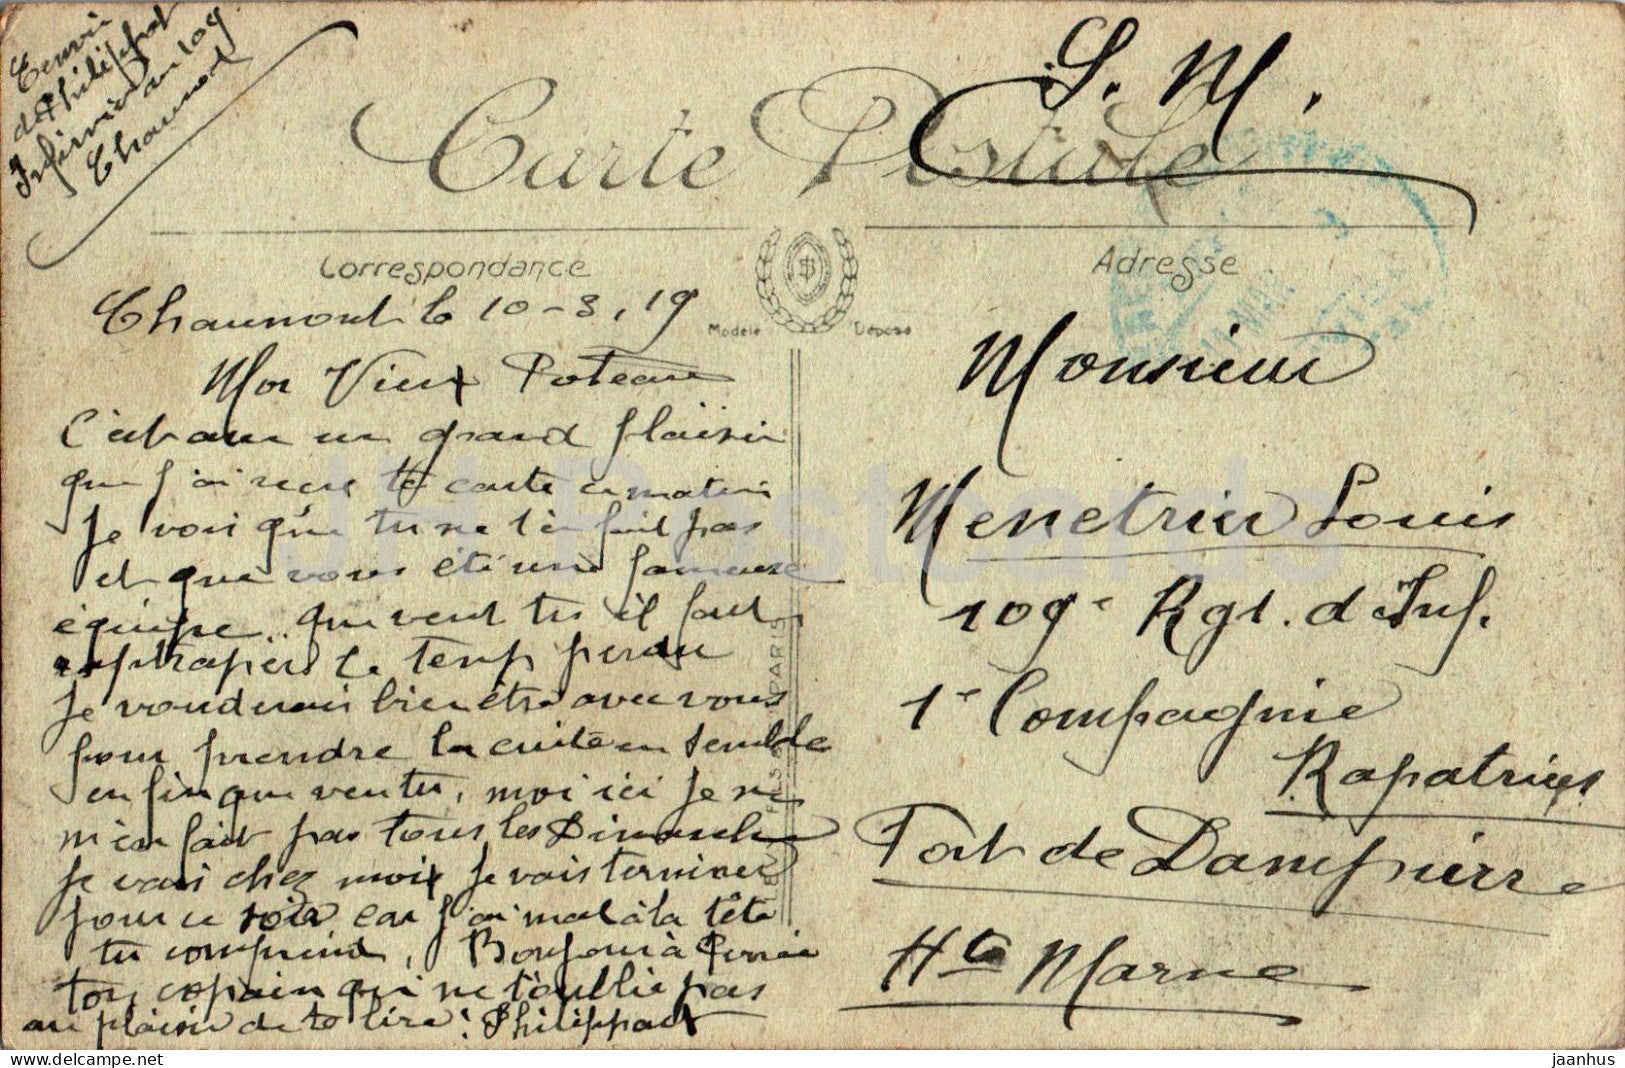 Envoi
de Philippot
Infirmier au 109
Chaumont
S. M.
Carte Postale
Correspondance
Adresse
Modèle Déposé
Chaumont le 10-3.19
Mon Vieux Poteau
C'est avec un grand plaisir
que j'ai reçu ta carte ce matin
Je vois que tu ne t'en fait pas
et que vous été une fameuse
équipe.. que veut tu il faut
raptraper le temp perdu
Je voudrais bien être avec vous
pour prendre la cuite en semble
enfin que veu tu, moi ici je ne
m'en fait pas tous les Dimanche
je vais chez moi je vais terminer
pour ce soir car j'ai mal à la tête
tu comprend, Bonjour à
ton copain qui ne t'oublie pas
au plaisir de te lire: Philippot
Monsieur
Menetrier Louis
109e Rgt. d'Inf.
1e Compagnie
Rapatriés
Fort de Dampierre
Hte Marne
PARIS
JH Postcards
jaanhus